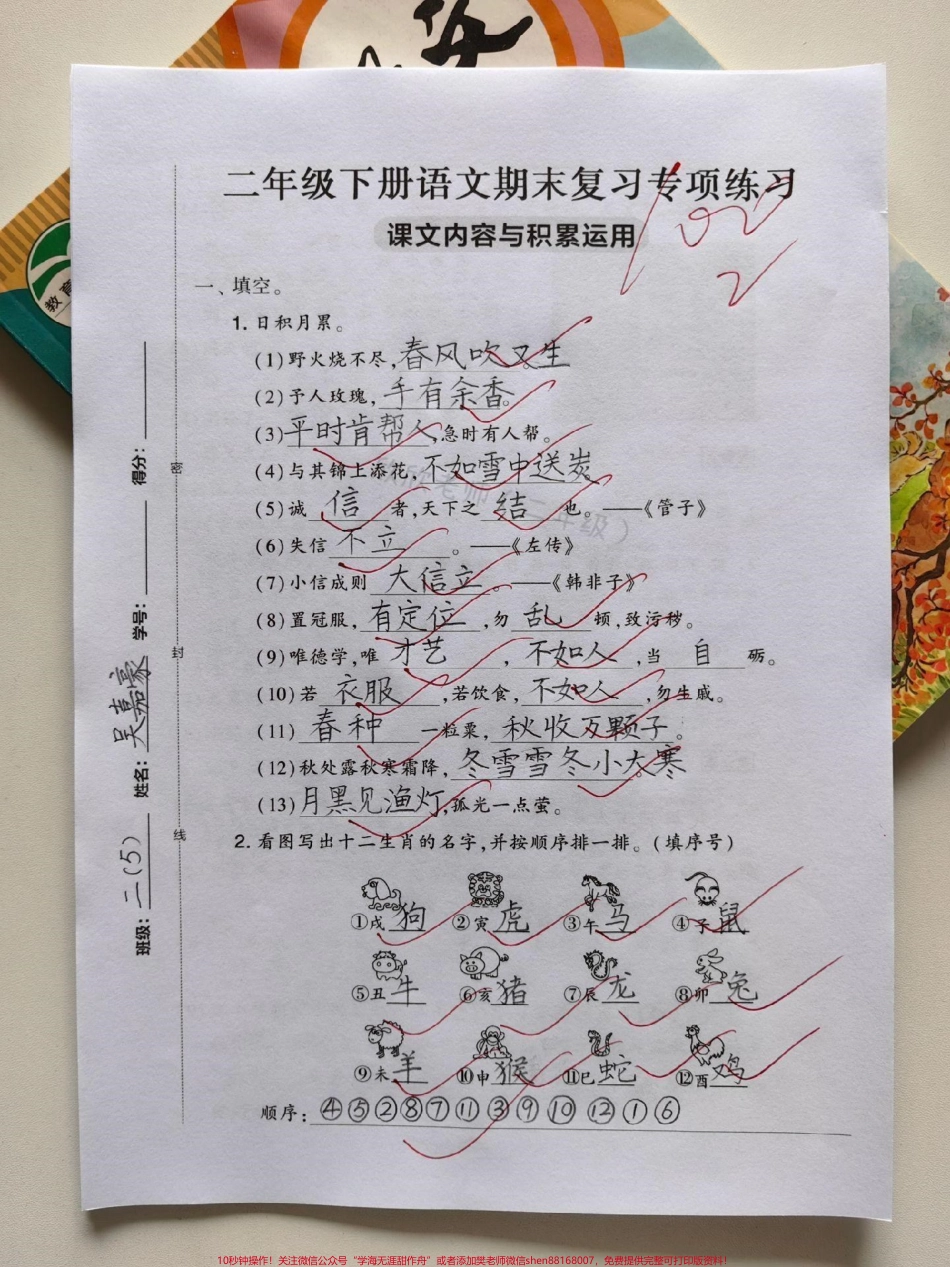 教育
二年级下册语文期末复习专项练习
100
2
课文内容与积累运用
一、填空。
1. 日积月累。
(1)野火烧不尽,春风吹又生。
(2)予人玫瑰,手有余香。
(3)平时肯帮人,急时有人帮。
(4)与其锦上添花,不如雪中送炭
(5)诚信者,天下之结也。——《管子》
(6)失信不立。——《左传》
(7)小信成则大信立。——《韩非子》
(8)置冠服,有定位,勿乱顿,致污秽。
(9)唯德学,唯才艺,不如人,当自砺。
(10)若衣服,若饮食,不如人,勿生戚。
(11)春种一粒粟,秋收万颗子。
(12)秋处露秋寒霜降,冬雪雪冬小大寒
(13)月黑见渔灯,孤光一点萤。
2. 看图写出十二生肖的名字,并按顺序排一排。(填序号)
①戌狗 ②寅虎 ③午马 ④子鼠
⑤丑牛 ⑥亥猪 ⑦辰龙 ⑧卯兔
⑨未羊 ⑩申猴 ⑪巳蛇 ⑫酉鸡
顺序:④⑤②⑧⑦⑪③⑨⑩⑫①⑥
班级:二(5) 姓名:吴嘉豪 学号: 得分:
密
封
线
10秒钟操作!关注微信公众号“学海无涯甜作舟”或者添加樊老师微信shen88168007,免费提供完整可打印版资料!